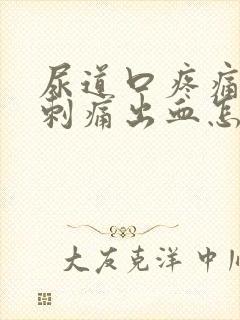 尿道口疼痛
刺痛出血怎
大友克洋 中川